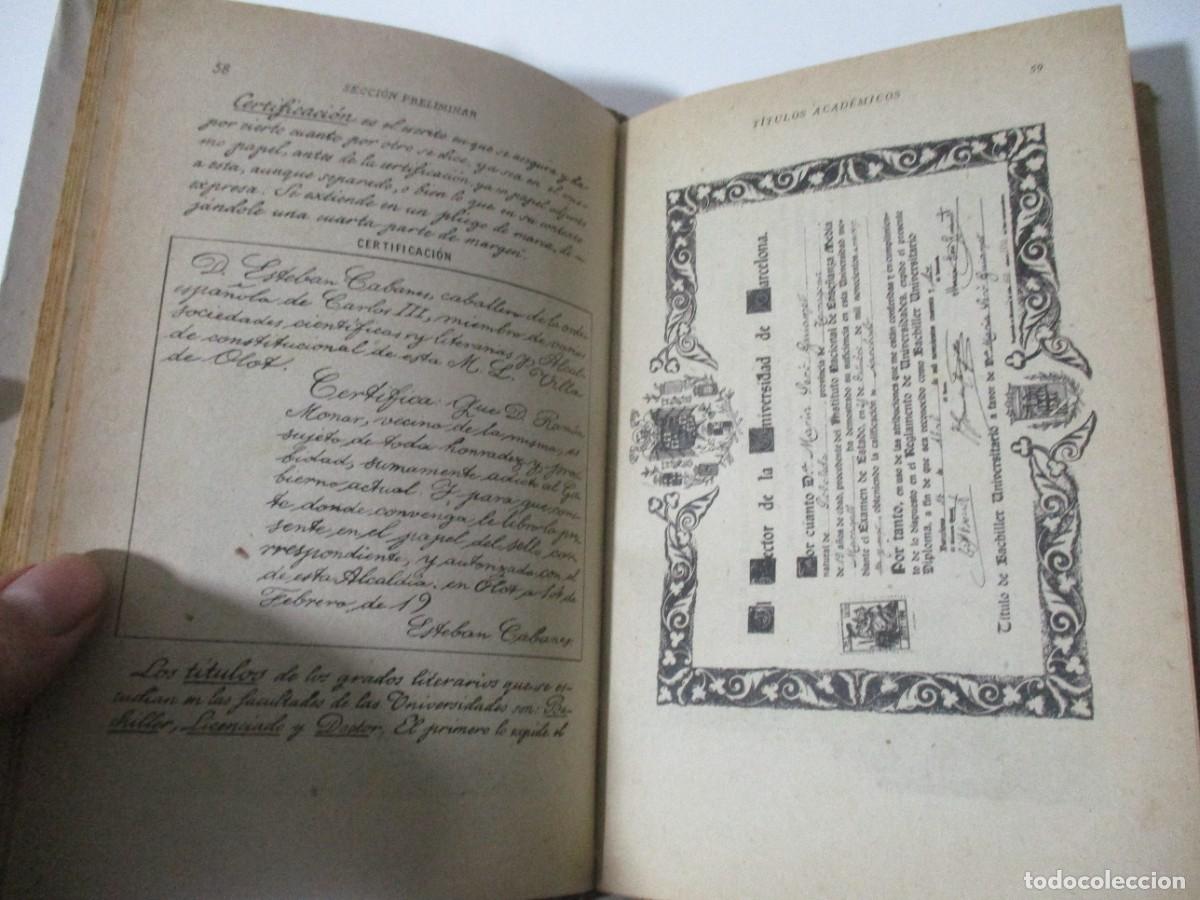 58
SECCIÓN PRELIMINAR
Certificación es el escrito en que se asegura y da
por cierto cuanto por otro se dice, ya sea en el mis-
mo papel, antes de la certificación, ya en papel adjunto
a esta, aunque separado, o bien lo que en su contexto
expresa. Se extiende en un pliego de marca, de-
jándole una cuarta parte de margen.
CERTIFICACIÓN
D. Esteban Cabanes, caballero de la orden
española de Carlos III, miembro de varias
sociedades científicas y literarias y Alcal-
de constitucional de esta M. L. Villa
de Olot.
Certifica: Que D. Ramón
Monar, vecino de la misma, es
sujeto de toda honradez y pro-
bidad, sumamente adicto al Go-
bierno actual. Y para que cons-
te donde convenga, le libro la pre-
sente en el papel del sello co-
rrespondiente, y autorizada con el
de esta Alcaldía en Olot a 1º de
Febrero de 19
Esteban Cabanes
Los títulos de los grados literarios que se es-
tudian en las facultades de las Universidades son: Ba-
chiller, Licenciado y Doctor. El primero lo expide el
59
TÍTULOS ACADÉMICOS
El Rector de la Universidad de Barcelona.
Por cuanto Dª María Peré
natural de provincia de
de 17 años de edad, procedente del Instituto Nacional de Enseñanza Media
ha demostrado su suficiencia en esta Universidad me-
diante el Examen de Estado, en de mil novecientos
obteniendo la calificación de
Por tanto, en uso de las atribuciones que me están conferidas y en cumplimien-
to de lo dispuesto en el Reglamento de Universidades, expido el presente
Diploma, a fin de que sea reconocido como Bachiller Universitario
Barcelona de de mil novecientos
Título de Bachiller Universitario a favor de Dª María
todocoleccion